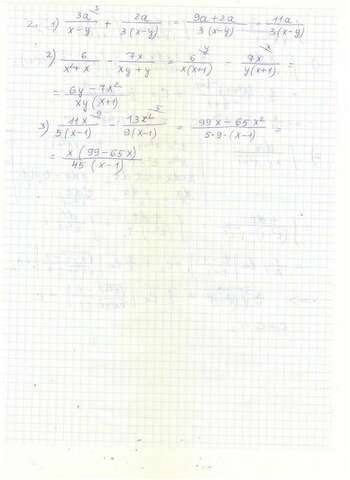 2. 1) 3a/(x-y) ³ + 2a/3(x-y) = (9a+2a)/3(x-y) = 11a/3(x-y)
2) 6/(x²+x) - 7x/(xy+y) = 6/x(x+1) ʸ - 7x/y(x+1) ˣ =
= (6y-7x²)/xy(x+1)
3) 11x/5(x-1) ⁹ - 13x²/9(x-1) ⁵ = (99x-65x²)/5·9·(x-1) =
= x(99-65x)/45(x-1)